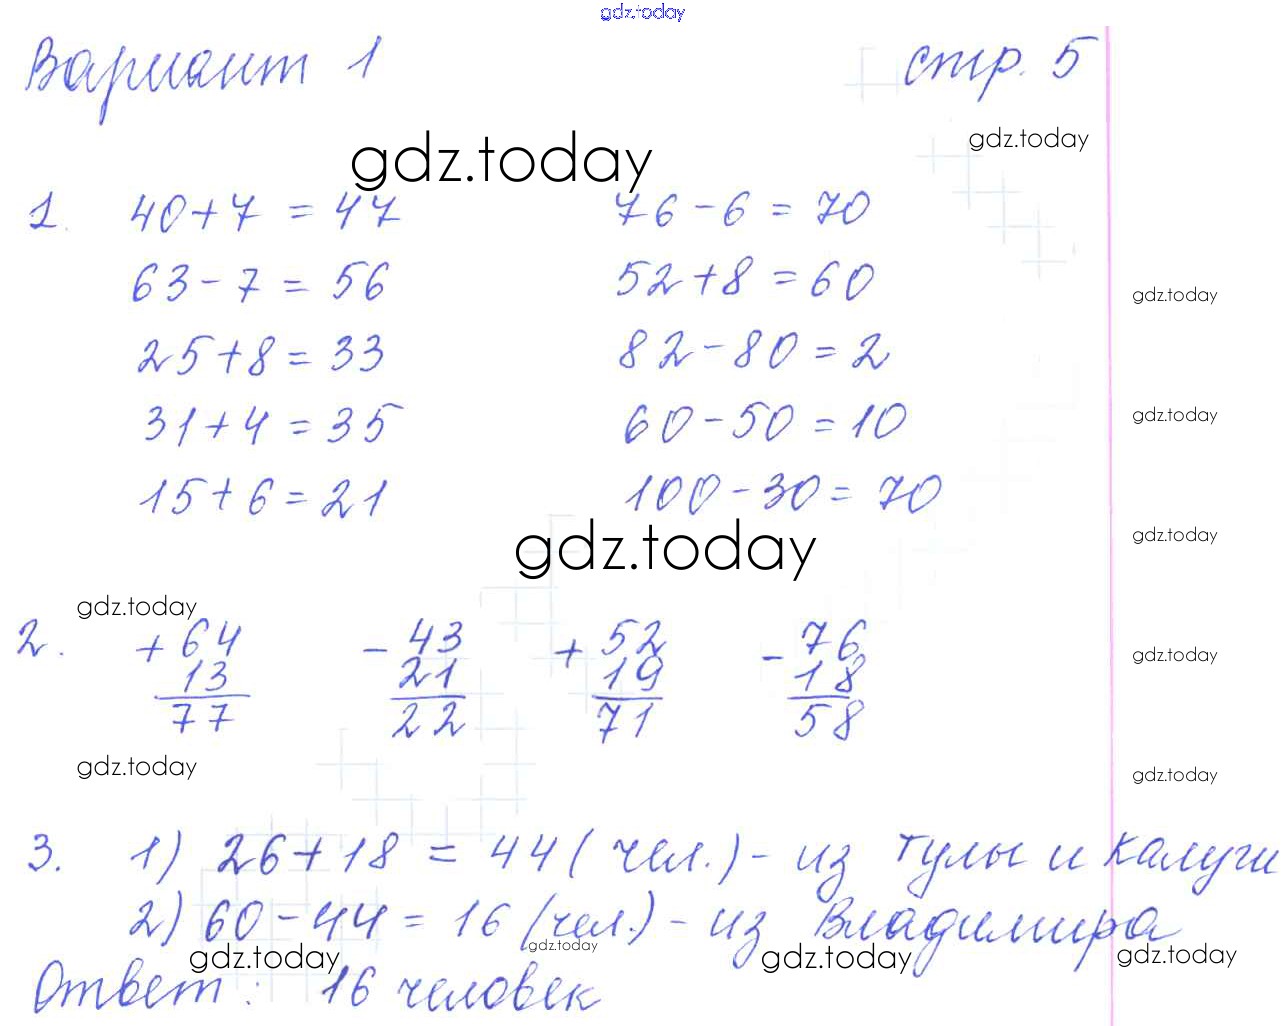 gdz.today
Вариант 1 стр. 5
gdz.today
gdz.today
1. 40+7 = 47 76-6 = 70
63-7 = 56 52+8 = 60
gdz.today
25+8 = 33 82-80 = 2
31+4 = 35 60-50 = 10
gdz.today
15+6 = 21 100-30 = 70
gdz.today
gdz.today
gdz.today
2. +64 -43 +52 -76
13 21 19 18
gdz.today
77 22 71 58
gdz.today
gdz.today
3. 1) 26+18 = 44 (чел.) - из Тулы и Калуги
2) 60-44 = 16 (чел.) - из Владимира
gdz.today
gdz.today gdz.today gdz.today
Ответ: 16 человек